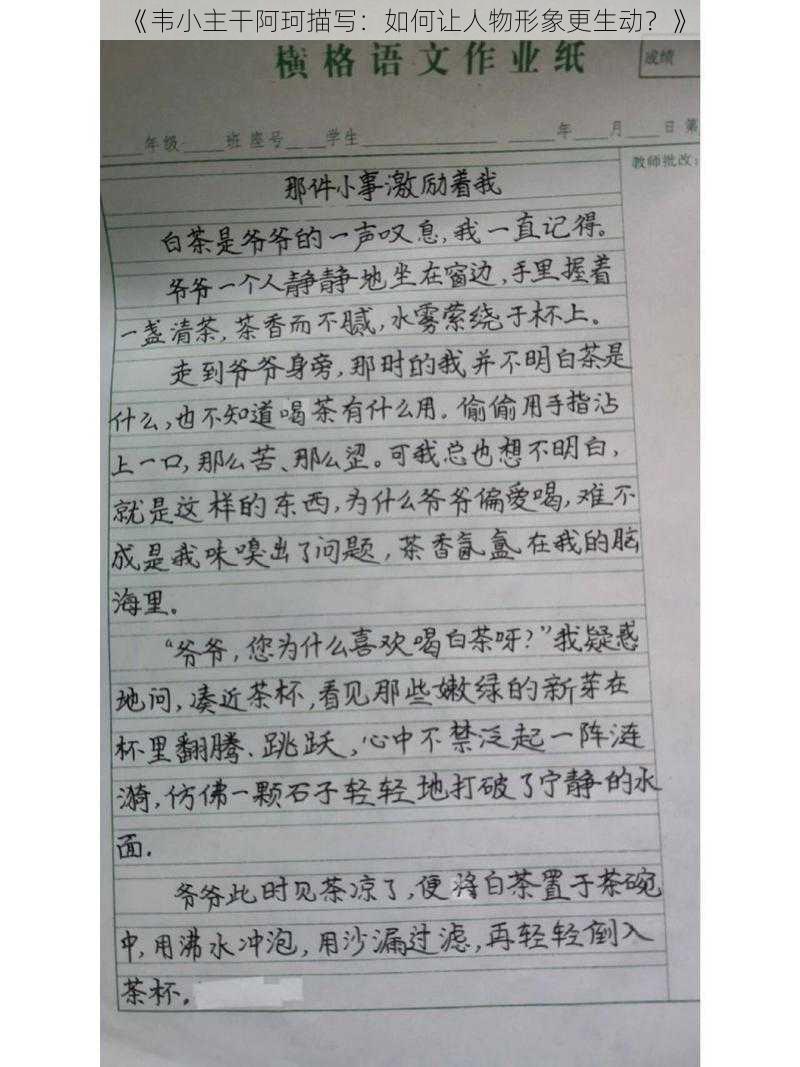 《韦小主干阿珂描写：如何让人物形象更生动？》
横格语文作业纸
成绩
年级 班 座号 学生 年 月 日 第
教师批改：
那件小事激励着我
白茶是爷爷的一声叹息，我一直记得。
爷爷一个人静静地坐在窗边，手里握着
一盏清茶，茶香而不腻，水雾萦绕于杯上。
走到爷爷身旁，那时的我并不明白茶是
什么，也不知道喝茶有什么用。偷偷用手指沾
上一口，那么苦、那么涩。可我总也想不明白，
就是这样的东西，为什么爷爷偏爱喝，难不
成是我味嗅出了问题，茶香氤氲在我的脑
海里。
“爷爷，您为什么喜欢喝白茶呀？”我疑惑
地问，凑近茶杯，看见那些嫩绿的新芽在
杯里翻腾、跳跃，心中不禁泛起一阵涟
漪，仿佛一颗石子轻轻地打破了宁静的水
面．
爷爷此时见茶凉了，便将白茶置于茶碗
中，用沸水冲泡，用沙漏过滤，再轻轻倒入
茶杯．